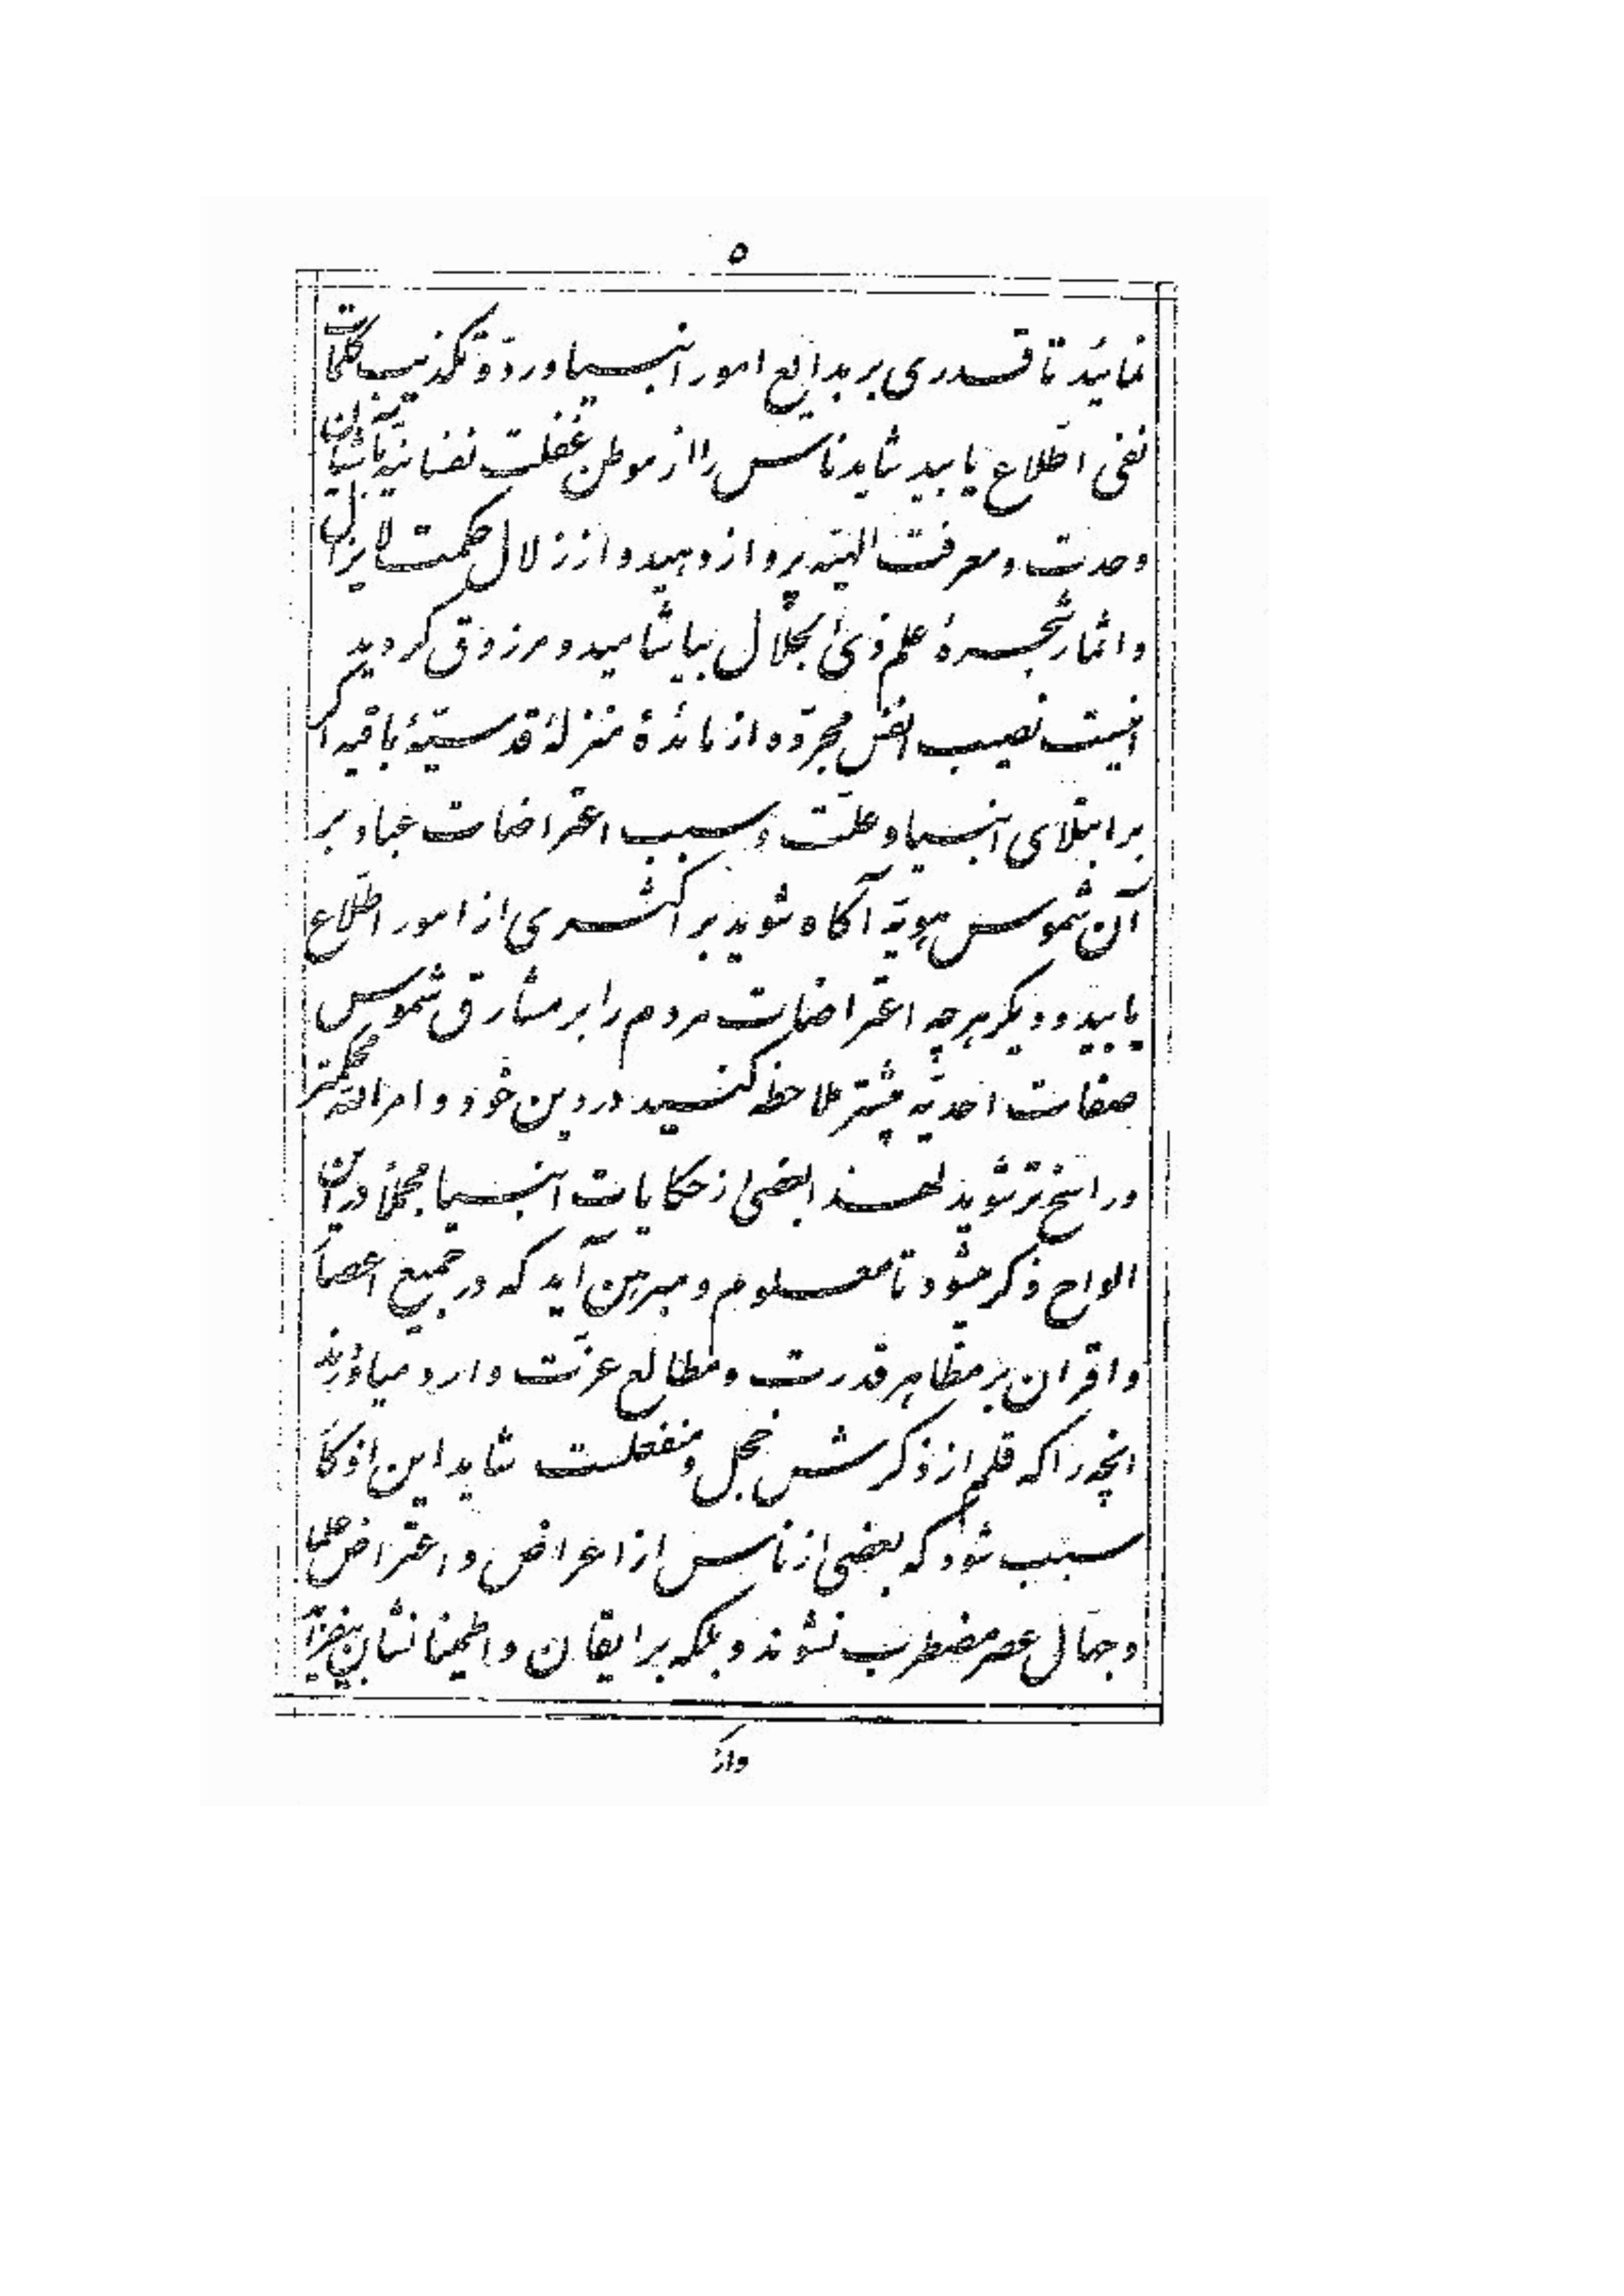 ۵
نمائید تا قدری بر بدایع امور انبیا و ردّ و تکذیب کلمات
نفی اطّلاع یابید شاید ناس را از موطن غفلت نفسانیّه بآشیان
وحدت و معرفت الهیّه پرواز دهید و از زلال حکمت لا یزال
و اثمار شجرهٔ علم ذی الجلال بیاشامید و مرزوق گردید
اینست نصیب انفس مجرّده از مائدهٔ منزلهٔ قدسیّهٔ باقیه اگر
بر ابتلای انبیا و علّت و سبب اعتراضات عباد بر
آن شموس هویّه آگاه شوید بر اکثری از امور اطّلاع
یابید و دیگر هرچه اعتراضات مردم را بر مشارق شموس
صفات احدیّه بیشتر ملاحظه کنید در دین خود و امر اللّه محکمتر
و راسخ تر شوید لهذا بعضی از حکایات انبیا مجملاً در این
الواح ذکر میشود تا معلوم و مبرهن آید که در جمیع اعصار
و اقران بر مظاهر قدرت و مطالع عزّت وارد میاوردند
انچه را که قلم از ذکرش خجل و منفعلست شاید این اذکار
سبب شود که بعضی از ناس از اعراض و اعتراض علما
و جهّال عصر مضطرب نشوند و بلکه بر ایقان و اطمینانشان بیفزاید
واز